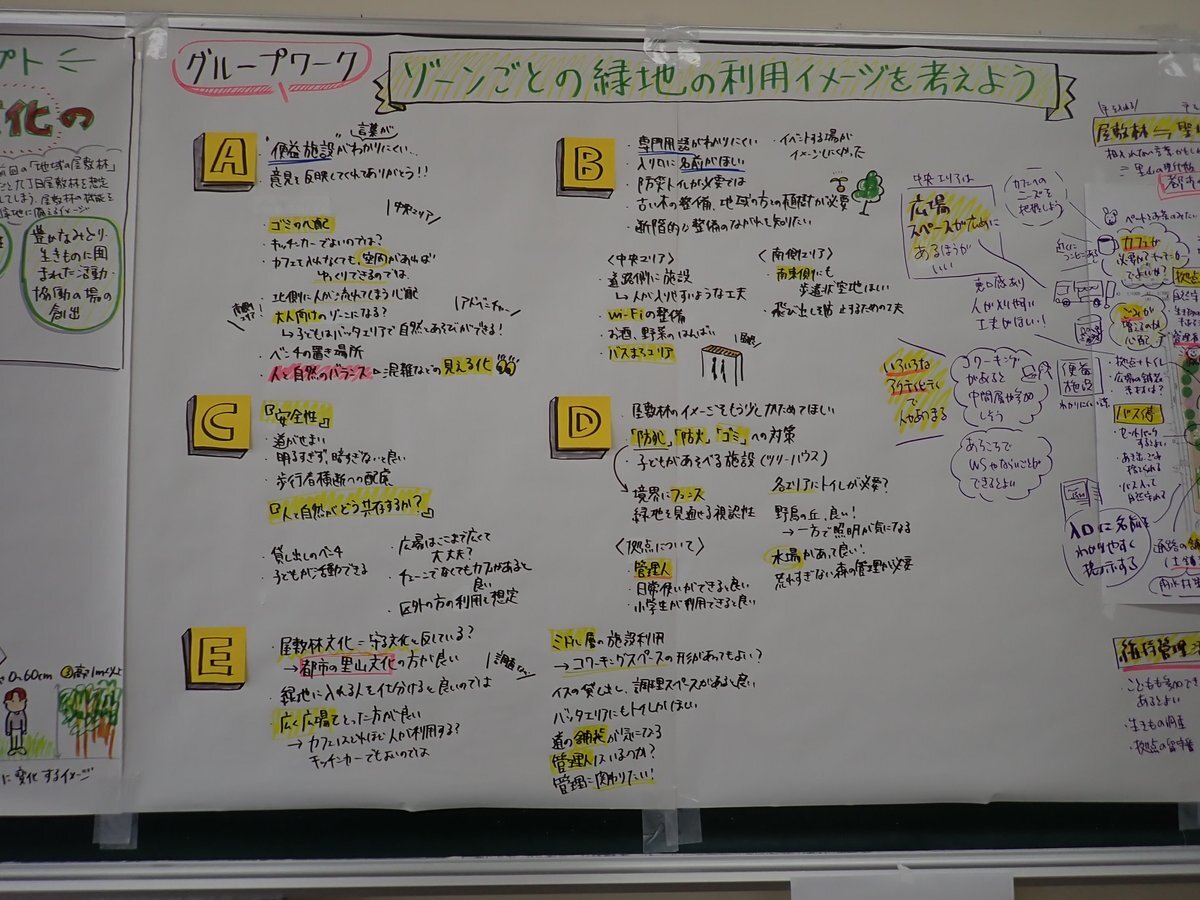 グループワーク
ゾーンごとの緑地の利用イメージを考えよう
A
言葉が
"便益施設"がわかりにくい…
意見を反映してくれてありがとう!!
中央エリア
・ゴミの心配
・キッチンカーでよいのでは?
・カフェを入れなくても、空間があれば
ゆっくりできるのでは。
・北側に人が流れてしまう心配
・大人向けのゾーンになる?
→子どもはバッタエリアで自然とあそびができる!
・ベンチの置き場所
・人と自然のバランス
混雑などの見える化
B
・専門用語がわかりにくい
・入りたい名前がほしい
・防災トイレが必要では
・古い木の整備、地域の方との植樹が必要
・断階的な整備のながれも知りたい
イベントする場が
イメージしにくかった
〈中央エリア〉
道路側に施設
→人が入りやすいような工夫
Wi-Fiの整備
お酒、野菜のはんばい
バスまちエリア
〈南側エリア〉
・南東側にも
歩道状空地ほしい
・飛び出しを防止するための工夫
C
『安全性』
・道がせまい
・明るすぎず、暗すぎないと良い
・歩行者横断への配慮
『人と自然がどう共存するか?』
・貸し出しのベンチ
・子どもが活動できる
・広場はここまで広くて
大丈夫?
・チェーンでなくてもカフェがあると
良い
・区外の方の利用も想定
D
・屋敷林のイメージをもう少しかためてほしい
・「防犯」「防火」「ゴミ」への対策
・子どもがあそべる施設(ツリーハウス)
境界にフェンス
緑地を見通せる視認性
〈拠点について〉
・管理人
・日常使いができると良い
・小学生が利用できると良い
各エリアにトイレが必要?
野鳥の丘、良い!
→一方で照明が気になる
水場があって良い!
荒れすぎない森の管理が必要
E
・屋敷林文化=守る文化と反している?
→都市の里山文化の方が良い
・緑地に入れる人を仕分けると良いのでは
・広く広場をとった方が良い
→カフェはどれほど人が利用する?
キッチンカーでもよいのでは
ミドル層の施設利用
→コワーキングスペースの形があってもよい?
イスの貸し出し、調理スペースがあると良い
バッタエリアにもトイレがほしい
道の舗装が気になる
管理人はいるのか?
管理に関わりたい!
中央エリアは
広場
スペースが広めに
あるほうが
いい
カフェへの
ニーズを
把握しよう
カフェが
心配
人が入りやすい
工夫がほしい!
いろいろな
アクティビティ
で
人があつまる
コワーキング
があると
中間層が参加
しそう
便益
施設
わかりにくい
あちこちで
WSやならいごとが
できるとよい
バス停
入口に名前を
わかりやすく
掲示する
屋敷林
都市の
維持管理
・こどもも参加でき
あるとよい
・生きもの調査
化の
前回の「地域の屋敷林」
豊かなみどり・
生きものに囲
まれた活動・
協働の場の
創出
0~60cm
に変化するイメージ